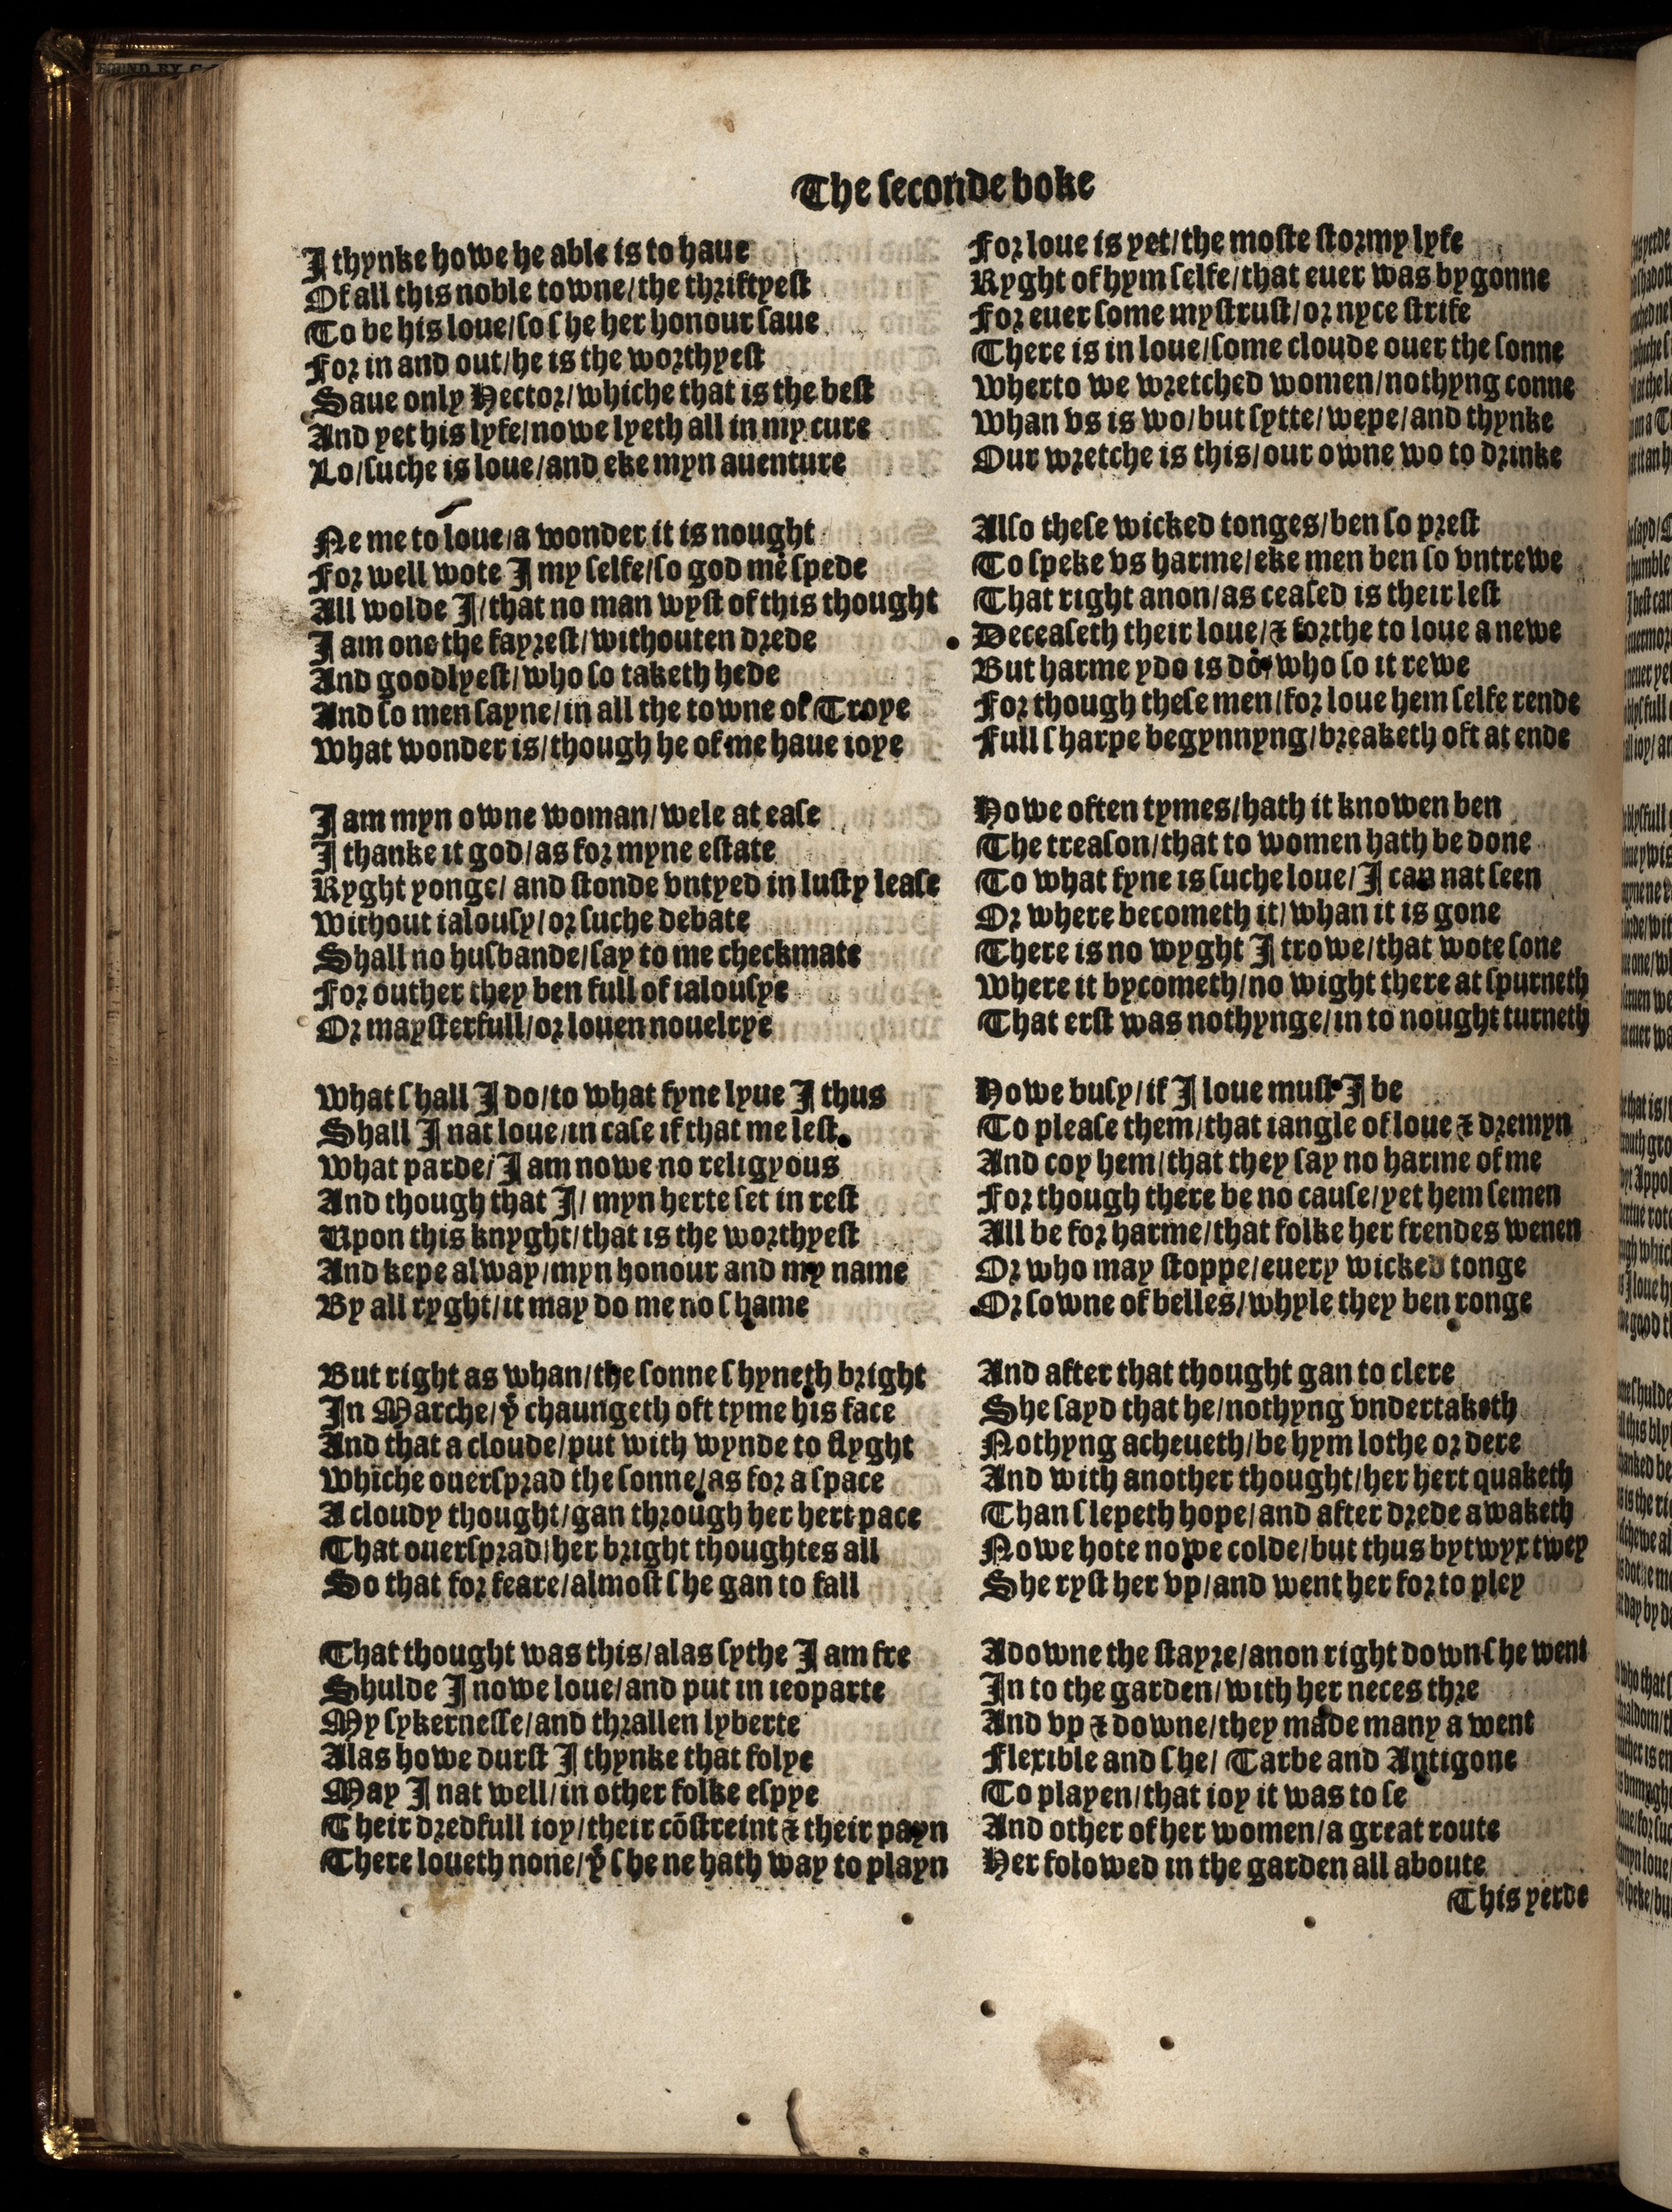 BOUND BY
The seconde boke
I thynke howe he able is to haue
Of all this noble towne/the thriftyest
To be his loue/so she her honour saue
For in and out/he is the worthyest
Saue only Hector/whiche that is the best
And yet his lyfe/nowe lyeth all in my cure
Lo/suche is loue/and eke myn auenture
Ne me to loue/a wonder it is nought
For well wote I my selfe/so god me spede
All wolde I/that no man wyst of this thought
I am one the fayrest/withouten drede
And goodlyest/who so taketh hede
And so men sayne/in all the towne of Troye
What wonder is/though he of me haue ioye
I am myn owne woman/wele at ease
I thanke it god/as for myne estate
Ryght yonge/ and stonde vntyed in lusty lease
Without ialousy/or suche debate
Shall no husbande/say to me checkmate
For outher they ben full of ialousye
Or maysterfull/or louen nouelrye
What shall I do/to what fyne lyue I thus
Shall I nat loue/in case if that me lest
What parde/I am nowe no religyous
And though that I/ myn herte set in rest
Upon this knyght/that is the worthyest
And kepe alway/myn honour and my name
By all ryght/it may do me no shame
But right as whan/the sonne shyneth bright
In Marche/yͭ chaungeth oft tyme his face
And that a cloude/put with wynde to flyght
Whiche ouersprad the sonne/as for a space
A cloudy thought/gan through her hert pace
That ouersprad/her bright thoughtes all
So that for feare/almost she gan to fall
That thought was this/alas sythe I am fre
Shulde I nowe loue/and put in ieoparte
My sykernesse/and thrallen lyberte
Alas howe durst I thynke that folye
May I nat well/in other folke espye
Their dredfull ioy/their cōstreint ⁊ their payn
There loueth none/yͭ she ne hath way to playn
For loue is yet/the moste stormy lyfe
Ryght of hym selfe/that euer was bygonne
For euer some mystrust/or nyce strife
There is in loue/some cloude ouer the sonne
Wherto we wretched women/nothyng conne
Whan vs is wo/but sytte/wepe/and thynke
Our wretche is this/our owne wo to drinke
Also these wicked tonges/ben so prest
To speke vs harme/eke men ben so vntrewe
That right anon/as ceased is their lest
Deceaseth their loue/⁊ forthe to loue a newe
But harme ydo is dō/who so it rewe
For though these men/for loue hem selfe rende
Full sharpe begynnyng/breaketh oft at ende
Howe often tymes/hath it knowen ben
The treason/that to women hath be done
To what fyne is suche loue/I can nat seen
Or where becometh it/whan it is gone
There is no wyght I trowe/that wote sone
Where it bycometh/no wight there at spurneth
That erst was nothynge/in to nought turneth
Howe busy/if I loue must I be
To please them/that iangle of loue ⁊ dremyn
And coy hem/that they say no harme of me
For though there be no cause/yet hem semen
All be for harme/that folke her frendes wenen
Or who may stoppe/euery wicked tonge
Or sowne of belles/whyle they ben ronge
And after that thought gan to clere
She sayd that he/nothyng vndertaketh
Nothyng acheueth/be hym lothe or dere
And with another thought/her hert quaketh
Than slepeth hope/and after drede awaketh
Nowe hote nowe colde/but thus bytwyx twey
She ryst her vp/and went her for to pley
Adowne the stayre/anon right down she went
In to the garden/with her neces thre
And vp ⁊ downe/they made many a went
Flexible and she/ Tarbe and Antigone
To playen/that ioy it was to se
And other of her women/a great route
Her folowed in the garden all aboute
This yerde